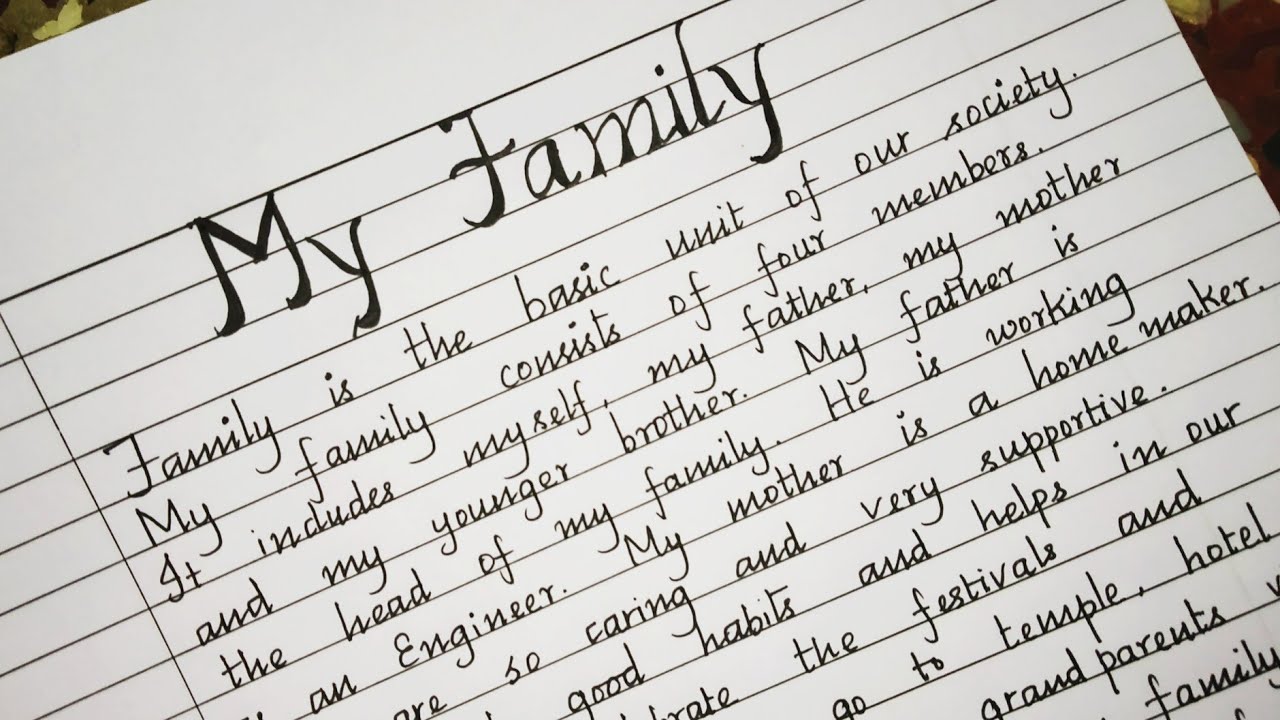 My Family
Family is the basic unit of our society.
My family consists of four members.
It includes myself, my father, my mother
and my younger brother. My father is
the head of my family. He is working
an Engineer. My mother is a home maker.
are so caring and very supportive.
good habits and helps in our
the festivals and
go to temple, hotel
grand parents
family